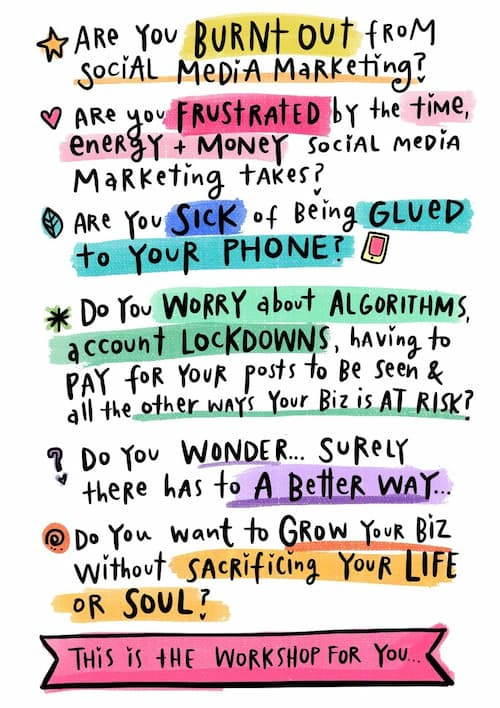 ARE YOU BURNT OUT FROM
SOCIAL MEDIA MARKETING?
ARE YOU FRUSTRATED BY THE TIME,
ENERGY + MONEY SOCIAL MEDIA
MARKETING TAKES?
ARE YOU SICK OF BEING GLUED
TO YOUR PHONE?
DO YOU WORRY about ALGORITHMS,
account LOCKDOWNS, HAVING to
PAY FOR YOUR posts to BE SEEN &
all the other WAYS YOUR BIZ is AT RISK?
DO YOU WONDER... SURELY
there HAS to A BETTER WAY...
DO YOU WANT to GROW YOUR BIZ
WITHOUT SACRIFICING YOUR LIFE
OR SOUL?
THIS IS THE WORKSHOP FOR YOU...